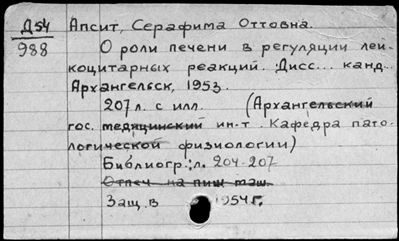 Д54 Апсит, Серафима Оттовна.
988 О роли печени в регуляции лей-
коцитарных реакций. Дисс... канд..
Архангельск, 1953.
207 л. с илл. (Архангельский
гос. медицинский ин-т. Кафедра пато-
логической физиологии)
Библиогр.: л. 204-207
Отпеч. на пиш. маш.
Защ. в 1954 г.